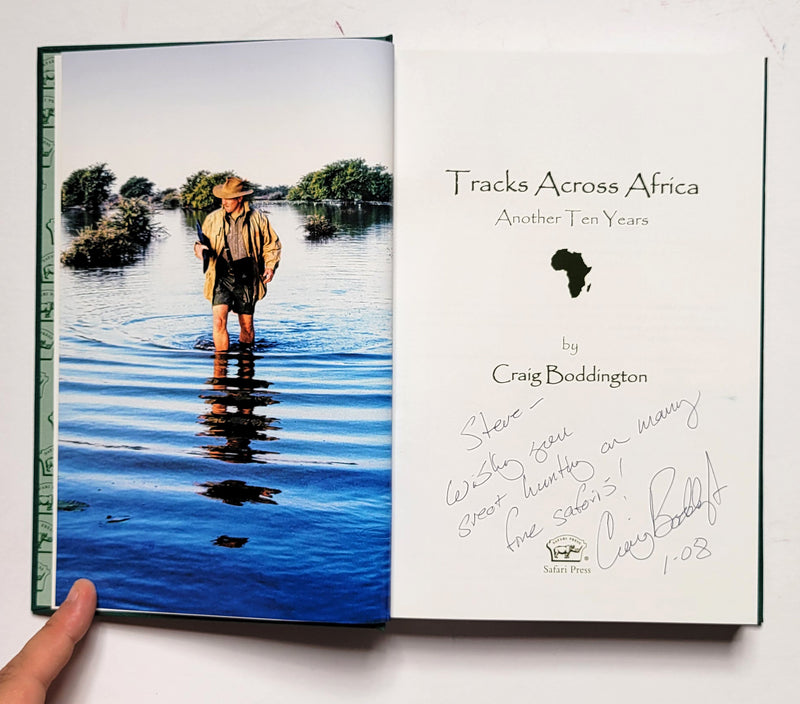 Tracks Across Africa
Another Ten Years
by
Craig Boddington
Steve –
Wishing you
great hunting on many
fine safaris!
Craig Boddington
1-08
SAFARI PRESS
®
Safari Press